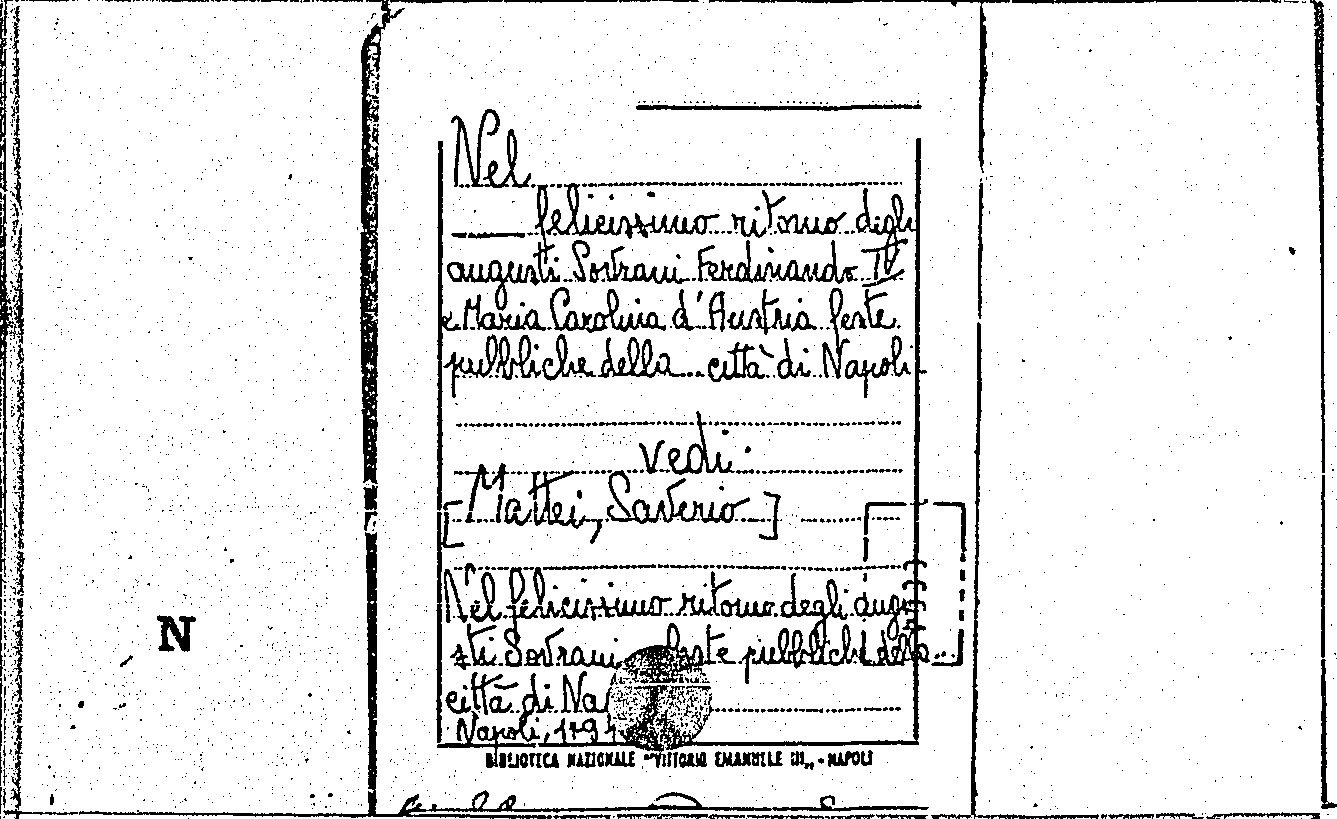 Nel
felicissimo ritorno degli
augusti Sovrani Ferdinando IV
e Maria Carolina d'Austria feste
pubbliche della città di Napoli
vedi:
[Mattei, Saverio]
Nel felicissimo ritorno degli augu
sti Sovrani feste pubbliche della
città di Na
Napoli, 1791
N
BIBLIOTECA NAZIONALE "VITTORIO EMANUELE III„ - NAPOLI